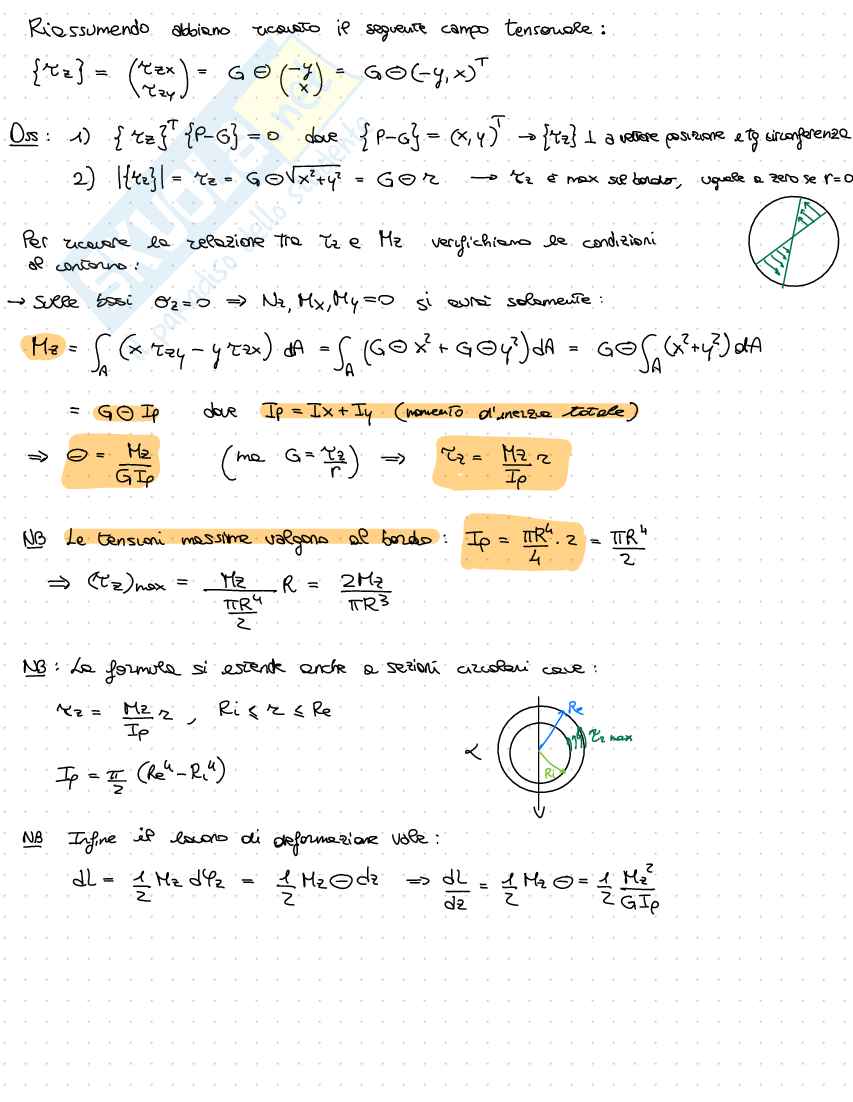 Riassumendo abbiamo ricavato il seguente campo tensionale:
{τz} = (τzx τzy) = GΘ (-y x) = GΘ(-y, x)^T
Oss: 1) {τz}^T {P-G} = 0 dove {P-G} = (x, y)^T → {τz} ⊥ a vettore posizione e tg circonferenza
2) |{τz}| = τz = GΘ√(x²+y²) = GΘr → τz è max sul bordo, uguale a zero se r=0
Per ricavare la relazione tra τz e Mz verifichiamo le condizioni
al contorno:
→ Sulle basi σz=0 ⇒ Nz, Mx, My=0 si avrà solamente:
Mz = ∫A (x τzy - y τzx) dA = ∫A (GΘx² + GΘy²) dA = GΘ∫A (x²+y²) dA
= GΘ Ip dove Ip = Ix + Iy (momento d'inerzia totale)
⇒ Θ = Mz/GIp (ma G = τz/r) ⇒ τz = Mz/Ip r
NB Le tensioni massime valgono al bordo: Ip = πR⁴/4 · 2 = πR⁴/2
⇒ (τz)max = Mz/(πR⁴/2) R = 2Mz/πR³
NB: La formula si estende anche a sezioni circolari cave:
τz = Mz/Ip r, Ri ≤ r ≤ Re
Re
τz max
Ri
Ip = π/2 (Re⁴ - Ri⁴)
NB Infine il lavoro di deformazione vale:
dL = 1/2 Mz dφz = 1/2 Mz Θ dz ⇒ dL/dz = 1/2 Mz Θ = 1/2 Mz²/GIp
SKUOLA.net
paradiso dello studente